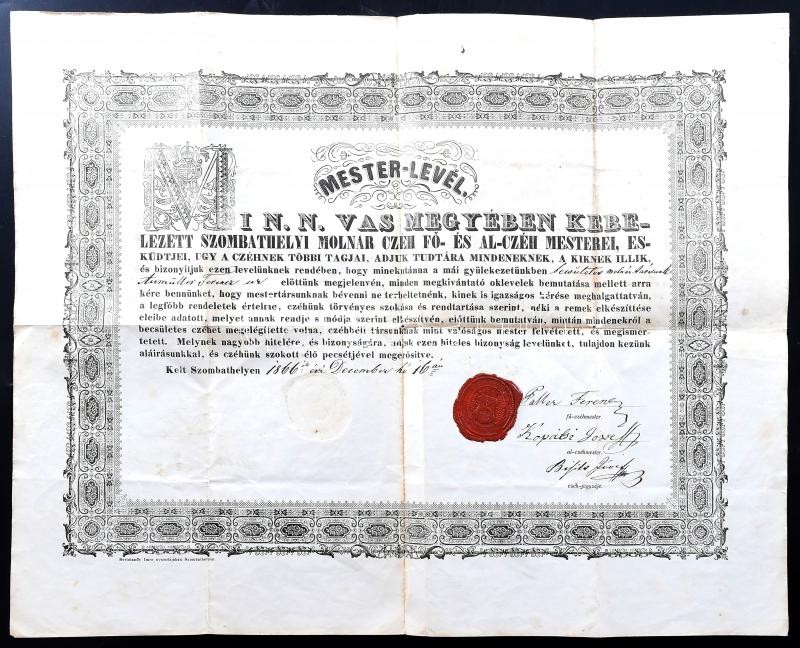 MESTER-LEVÉL.
MI N. N. VAS MEGYÉBEN KEBE-
LEZETT SZOMBATHELYI MOLNÁR CZÉH FŐ- ÉS AL-CZÉH MESTEREI, ES-
KÜDTJEI, UGY A CZÉHNEK TÖBBI TAGJAI, ADJUK TUDTÁRA MINDENEKNEK, A KIKNEK ILLIK,
és bizonyitjuk ezen levelünknek rendében, hogy minekutánna a mái gyülekezetünkben becsületes molnár
Ferencz úr előttünk megjelenvén, minden megkivántató oklevelek bemutatása mellett arra
kére bennünket, hogy mestertársunknak bévenni ne terheltetnénk, kinek is igazságos kérése meghalgattatván,
a legfőbb rendeletek értelme, czéhünk törvényes szokása és rendtartása szerint, néki a remek elkészittése
eleibe adatott, melyet annak rendje s módja szerint elkészitvén, előttünk bemutatván, miután mindenekről a
becsületes czéhet megelégitette volna, czéhbéli társunknak mint valóságos mester felvétetett, és megismer-
tetett. Melynek nagyobb hitelére, és bizonyságára, adjuk ezen hiteles bizonyság levelünket, tulajdon kezünk
aláirásunkkal, és czéhünk szokott élő pecsétjével megerősitve.
Kelt Szombathelyen 1866ik évi December hó 16án
Ferencz
fő-czéhmester.
József
al-czéhmester.
József
czéh-jegyzője.
Bertalanffy Imre nyomdájában Szombathelyen.